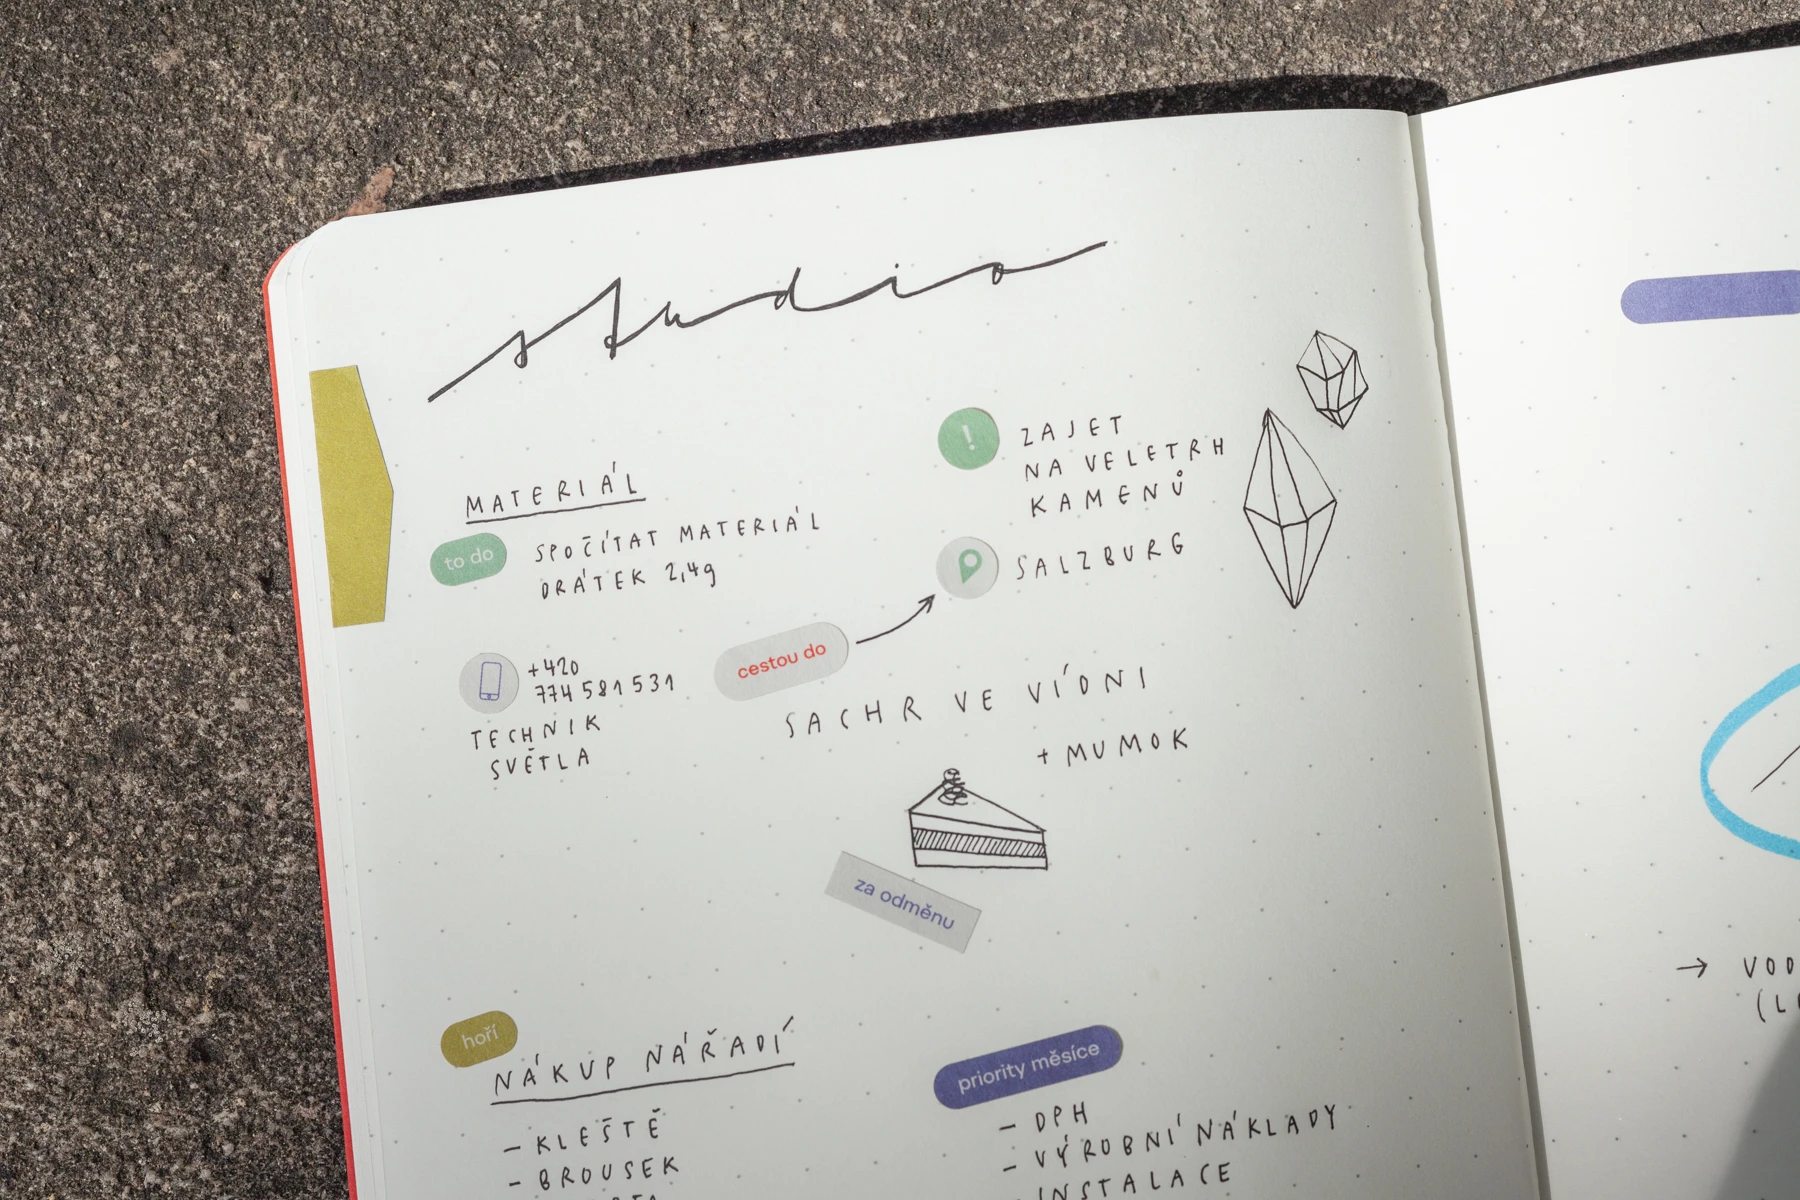 studio
MATERIÁL
to do
SPOČÍTAT MATERIÁL
DRÁTEK 2,4g
+420
774 581 531
TECHNIK
SVĚTLA
!
ZAJET
NA VELETRH
KAMENŮ
SALZBURG
cestou do
SACHR VE VÍDNI
+ MUMOK
za odměnu
hoří
NÁKUP NÁŘADÍ
– KLEŠTĚ
– BROUSEK
priority měsíce
– DPH
– VÝROBNÍ NÁKLADY
INSTALACE
→